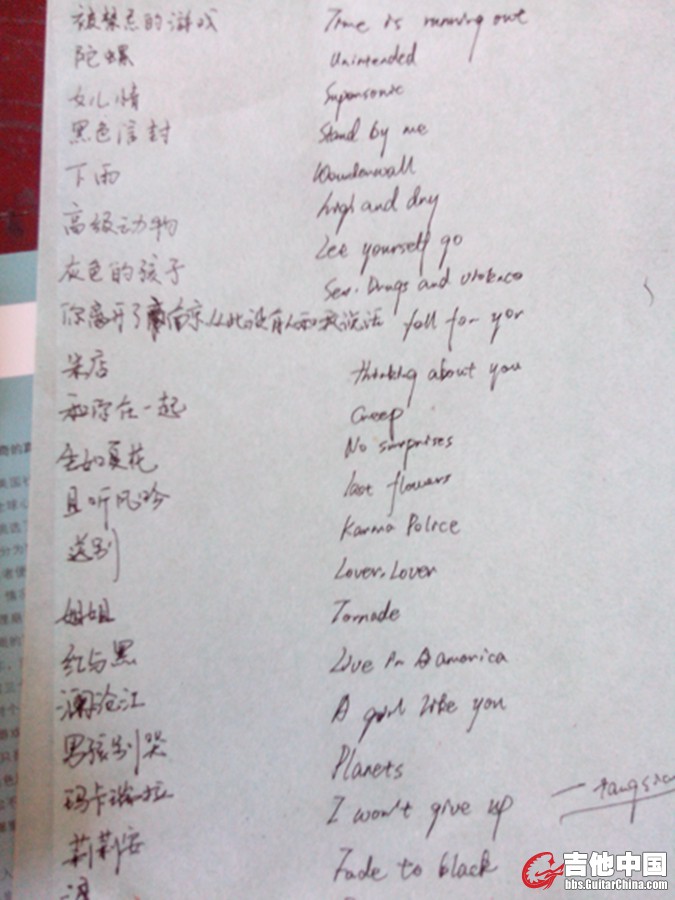 被禁忌的游戏 Time is running out
陀螺 Unintended
女儿情 Supersonic
黑色信封 Stand by me
下雨 Wonderwall
高级动物 high and dry
灰色的孩子 Lee yourself go
你离开了南京从此没有人和我说话 Sex. Drugs and violence
fall for you
米店 thinking about you
和你在一起 Creep
生如夏花 No surprises
且听风吟 last flowers
送别 Karma Police
Lover. Lover
姐姐 Tornade
红与黑 Live in America
澜沧江 A girl like you
男孩别哭 Planets
玛卡瑞拉 I won't give up
莉莉安 Fade to black
吉他中国
bbs.GuitarChina.com